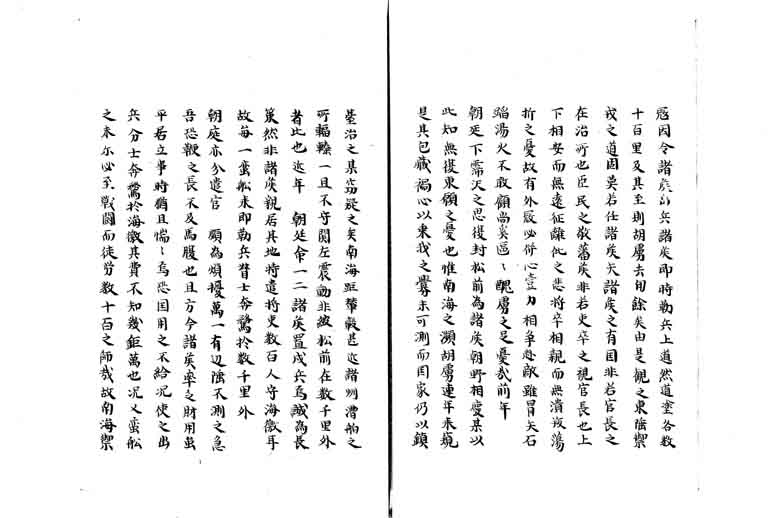 寇因令諸矦出兵諸矦即時勒兵上道然道塗各數
十百里及其至則胡虜去旬餘矣由是觀之東陲禦
戎之道固莫若任諸矦矣諸矦之有国非若官長之
在治所也臣民之敬藩矦非若吏卒之視官長也上
下相安而無遠征離仳之悲将卒相親而無潰散蕩
折之憂故有外寇必併心壹力相爭赴敵雖冒矢石
蹈湯火不敢顧焉奚區〻醜虜之足憂哉前年
朝廷下霈天之恩復封松前為諸矦朝野相慶某以
此知無復東顧之憂也惟南海之濒胡虜連年来窺
是其包藏禍心以乗我之釁未可測而国家仍以鎮
臺治之某窃疑之矣南海距輦轂甚迩諸州漕舶之
所輻輳一旦不守関左震動非彼松前在数千里外
者比也近年 朝廷命一二諸矦置戍兵焉誠為長
策然非諸矦親居其地特遣将吏数百人守海徼耳
故每一蛮船来即勒兵督士奔騖扵数千里外
朝庭亦分遣官 頗為煩擾萬一有边陲不測之急
吾恐鞭之長不及馬腹也且方今諸矦率之財用虽
平若立事時猶且惴〻焉恐国用之不給况使之出
兵分士奔騖扵海徼其費不知幾鉅萬也况又蛮船
之来尓必至戦闘而徒労数十百之師哉故南海禦